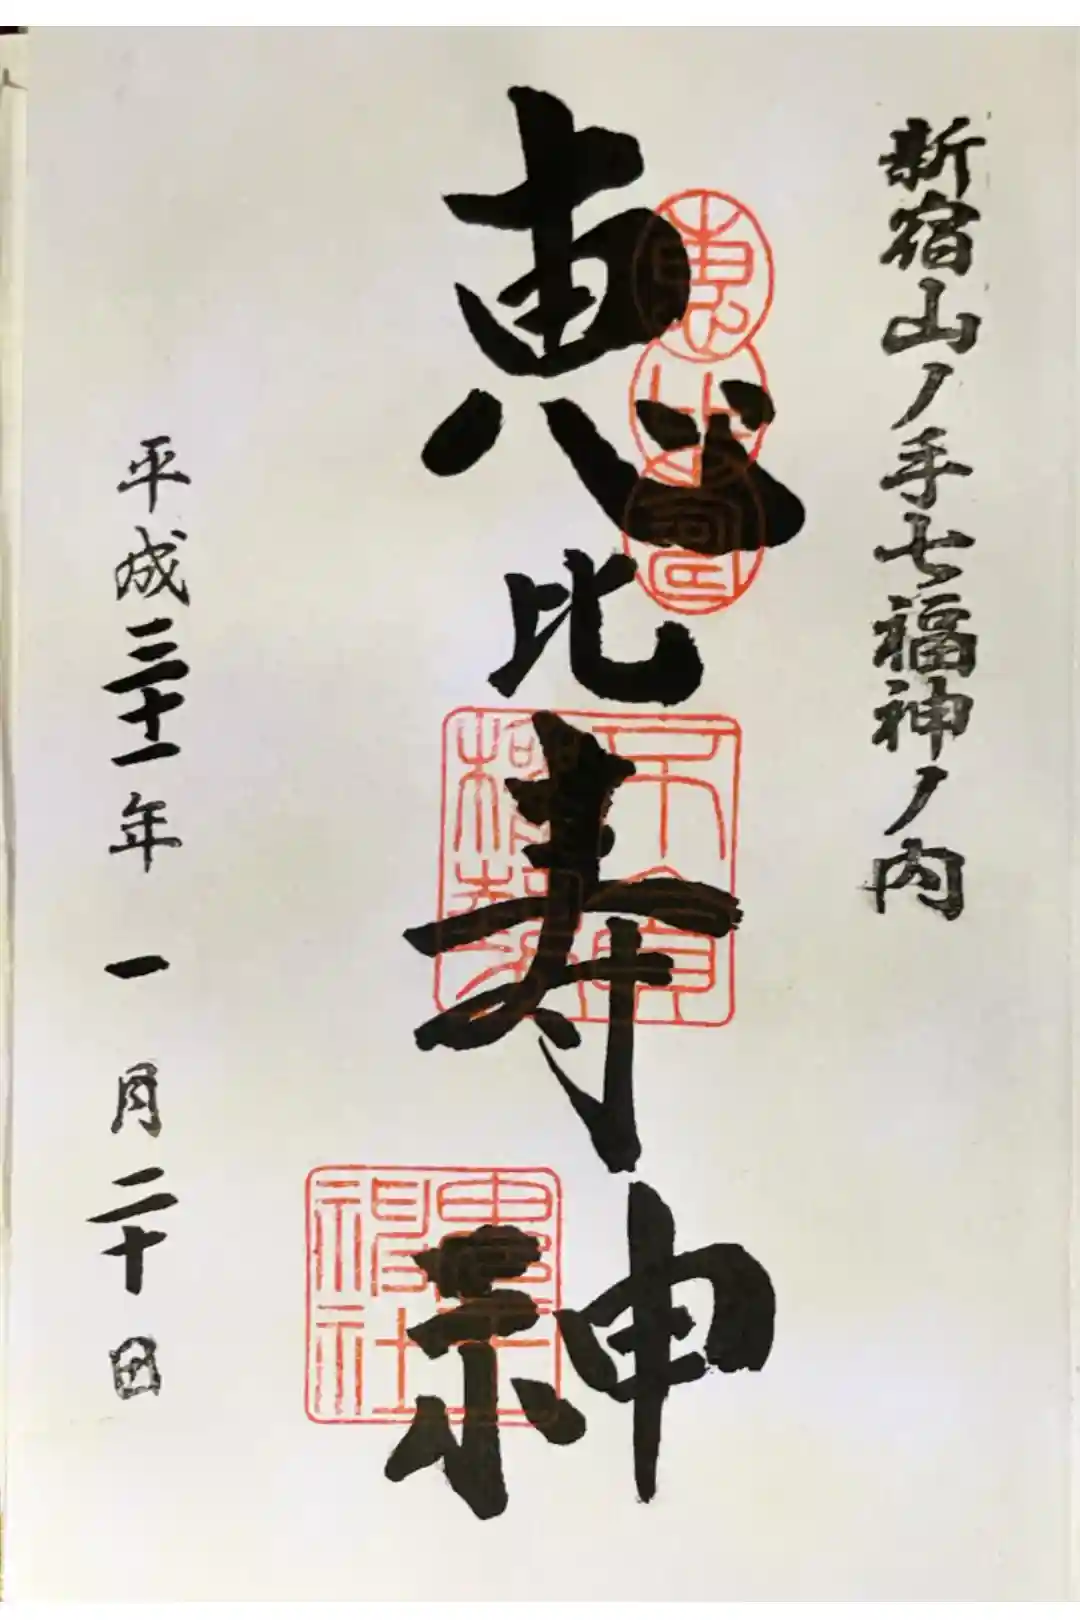 新宿山ノ手七福神ノ内
恵比寿神
平成三十一年 一月二十日
恵比寿